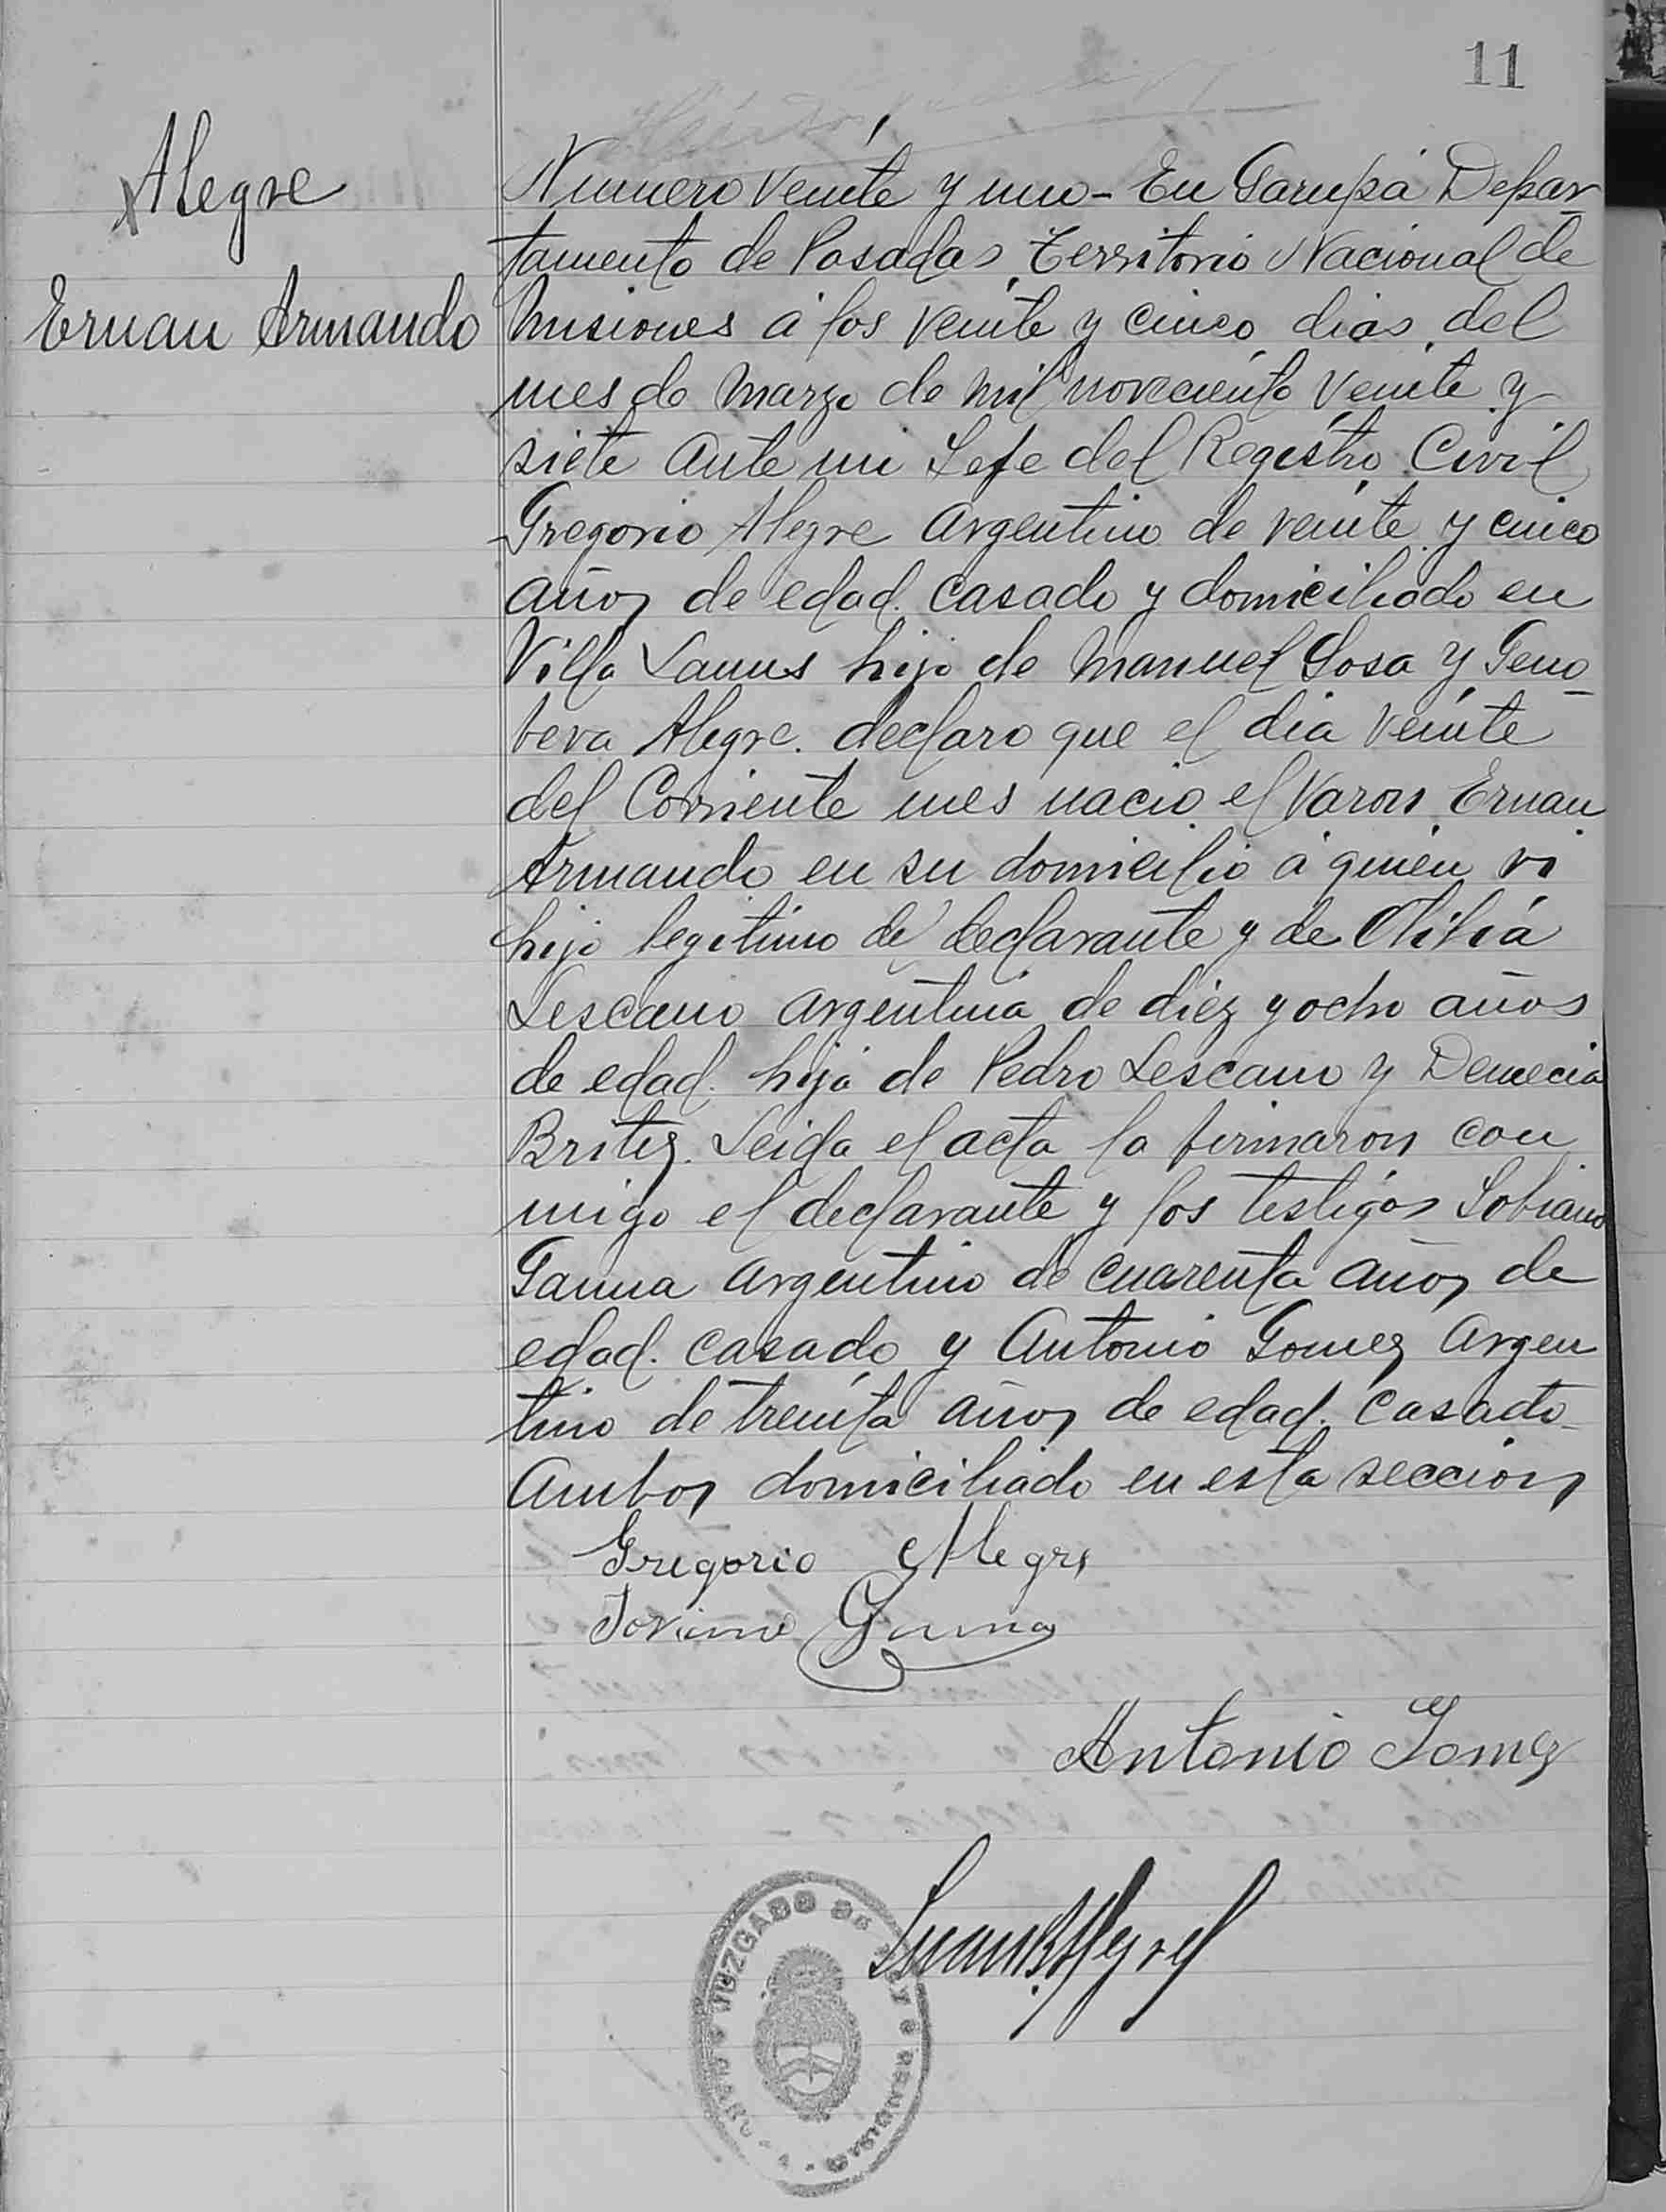 11
Alegre
Ernan Armando
Numero veinte y uno - En Garupá Depar
tamento de Posadas Territorio Nacional de
Misiones á los veinte y cinco dias del
mes de Marzo de mil novecciento veinte y
siete ante mi Jefe del Registro Civil
Gregorio Alegre argentino de veinte y cinco
años de edad. casado y domiciliado en
Villa Lanus hijo de Manuel Sosa y Geno
beva Alegre. declaro que el dia veinte
del corriente mes nacio el varon Ernan
Armando en su domicilio á quien vi
hijo legitimo de declarante y de Olibia
Lescano argentina de diez y ocho años
de edad. hija de Pedro Lescano y Demecia
Britez. Leida el acta la firmaron con
migo el declarante y los testigos Jobiano
Gauna argentino de cuarenta años de
edad. casado y Antonio Gomez argen
tino de treinta años de edad. casado -
ambos domiciliado en esta seccion
Gregorio Alegre
Joviano Gauna
Antonio Gomez
Juan B Alegre
JUZGADO DE